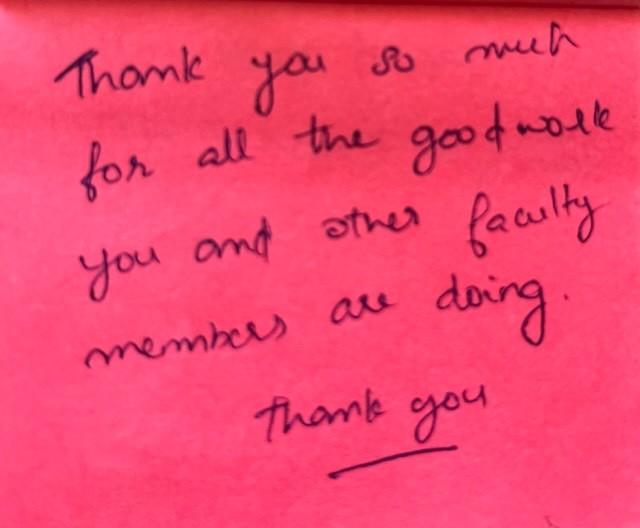 Thank you so much
for all the good work
you and other faculty
members are doing.
Thank you